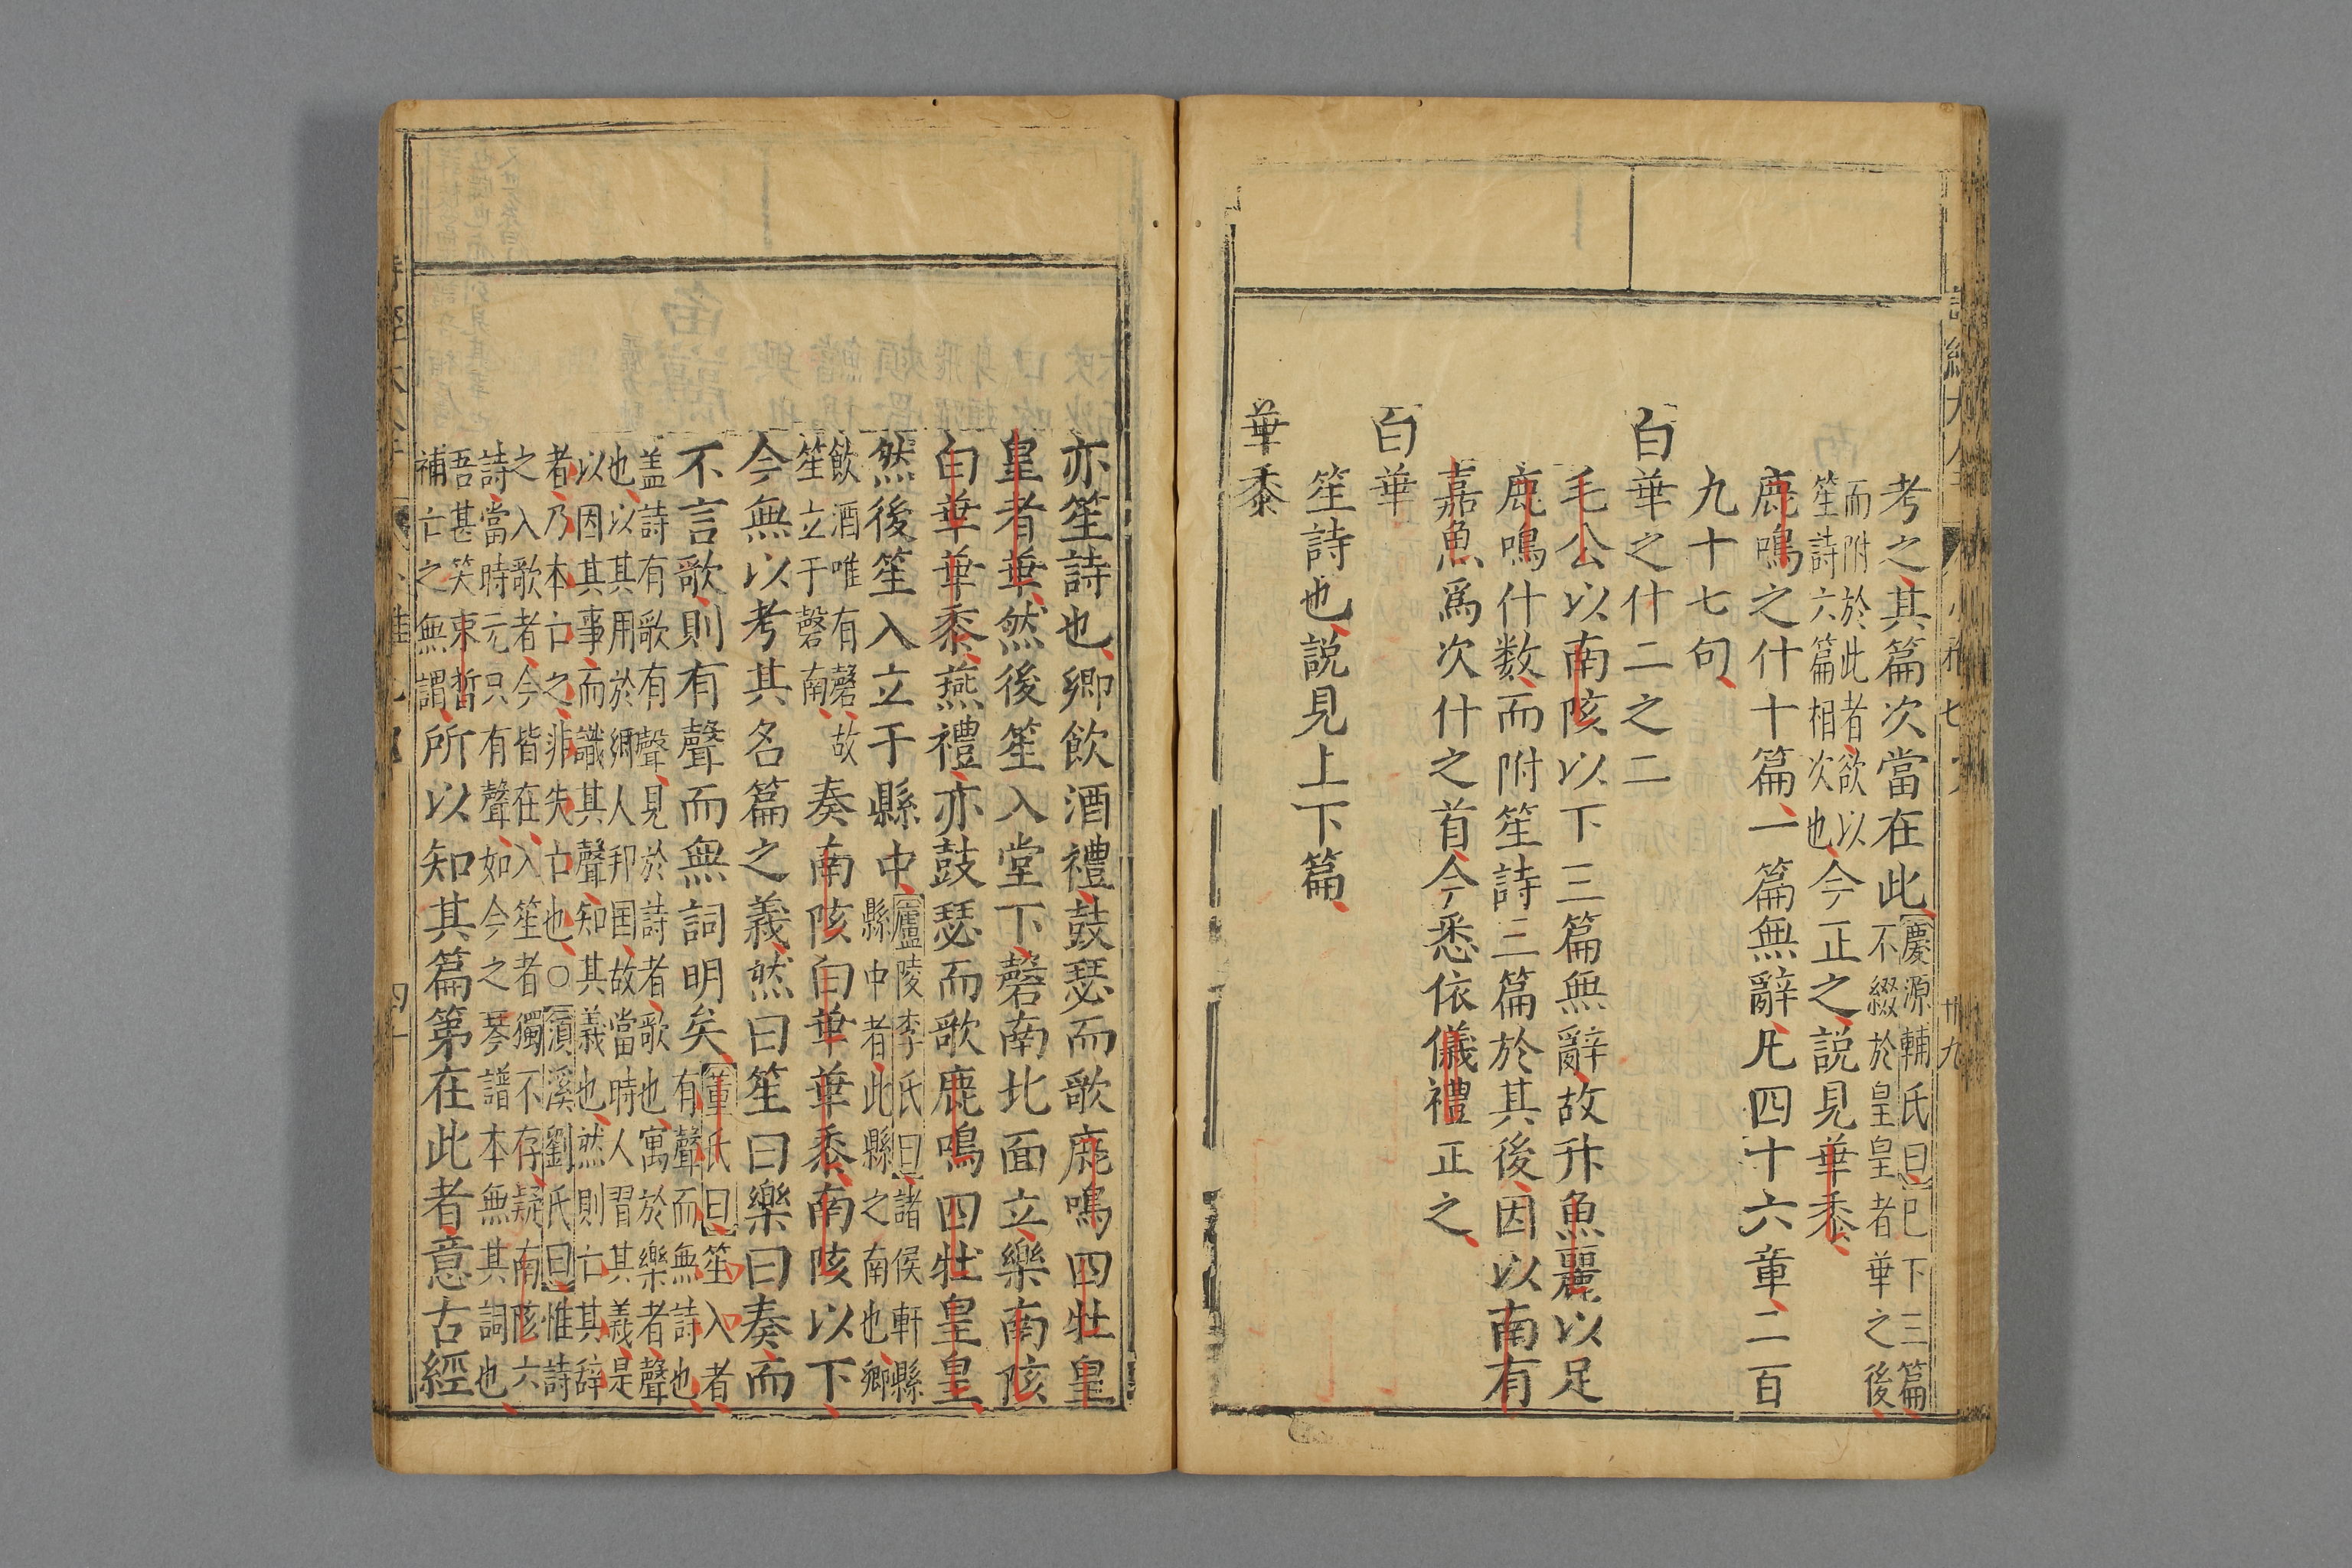 考之其篇次當在此慶源輔氏曰巳下三篇
不綴於皇皇者華之後
而附於此者欲以
笙詩六篇相次也今正之說見華黍
鹿鳴之什十篇一篇無辭凡四十六章二百
九十七句
白華之什二之二
毛公以南陔以下三篇無辭故升魚麗以足
鹿鳴什数而附笙詩三篇於其後因以南有
嘉魚為次什之首今悉依儀禮正之
白華
笙詩也說見上下篇
華黍
亦笙詩也鄉飲酒禮鼓瑟而歌鹿鳴四牡皇
皇者華然後笙入堂下磬南北面立樂南陔
白華華黍燕禮亦鼓瑟而歌鹿鳴四牡皇皇
然後笙入立于縣中廬陵李氏曰諸侯軒縣
縣中者此縣之南也鄉
飲酒唯有磬故
笙立于磬南奏南陔白華華黍南陔以下
今無以考其名篇之義然曰笙曰樂曰奏而
不言歌則有聲而無詞明矣董氏曰笙入者
有聲而無詩也
盖詩有歌有聲見於詩者歌也寓於樂者聲
也以其用於鄉人邦国故當時人習其義是
以因其事而識其聲知其義也然則亡其辞
者乃本亡之非失亡也○濮溪劉氏曰惟詩
之入歌者今皆在入笙者獨不存疑南陔六
詩當時元只有聲如今之琴譜本無其詞也
吾甚笑束晳
補亡之無謂所以知其篇第在此者意古經